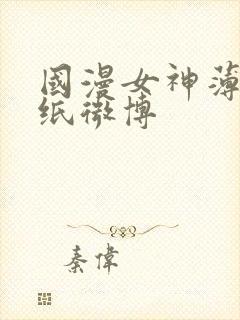 國漫女神薄
纸微博
秦偉